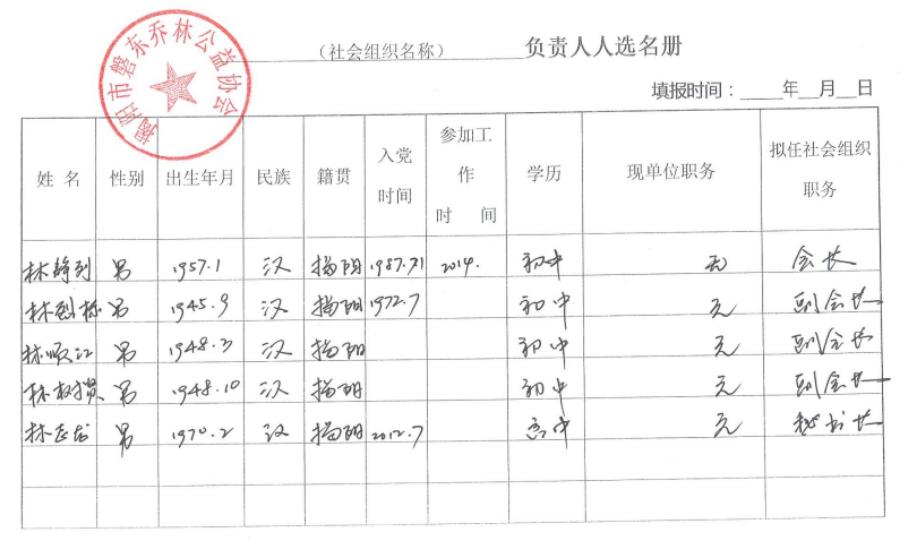 揭阳市磐东乔林公益协会
（社会组织名称） 负责人人选名册
填报时间：____年__月__日
姓名 性别 出生年月 民族 籍贯 入党时间 参加工作时间 学历 现单位职务 拟任社会组织职务
林静列 男 1957.1 汉 揭阳 1987. 2014. 初中 无 会长
林烈栋 男 1945.9 汉 揭阳 1972.7 初中 元 副会长
林顺江 男 1948.3 汉 揭阳 初中 元 副会长
林 男 1948.10 汉 揭阳 初中 元 副会长
林 男 1970.2 汉 揭阳 2012.7 高中 元 秘书长